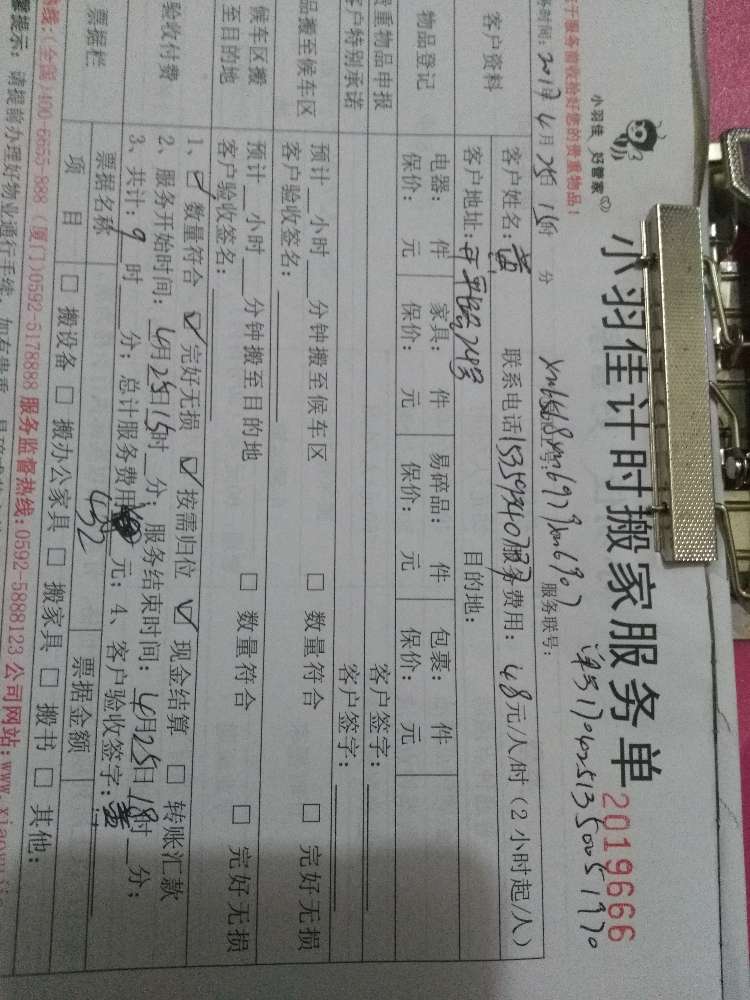 小羽佳 好管家
小羽佳计时搬家服务单
2019666
单号1704251350051970
于服务首收恰好您的贵重物品!
务时间: 2017年4月25日 15时 分
服务联号:
客户资料
客户姓名:
联系电话
服务费用: 48元/人/时(2小时起/人)
客户地址:
目的地:
物品登记
电器: 件 家具: 件 易碎品: 件 包裹: 件
保价: 元 保价: 元 保价: 元 保价: 元
贵重物品申报
客户签字:
客户特别承诺
客户签字:
品搬至候车区
预计__小时__分钟搬至候车区 □ 数量符合 □ 完好无损
客户验收签名:
候车区搬至目的地
预计__小时__分钟搬至目的地 □ 数量符合 □ 完好无损
客户验收签名:
验收付费
1、☑ 数量符合 ☑ 完好无损 ☑ 按需归位 ☑ 现金结算 □ 转账汇款
2、服务开始时间: 4月25日15时__分; 服务结束时间: 4月25日18时__分;
3、共计: 9时__分; 总计服务费用 432 元; 4、客户验收签字:
票据栏
票据名称
票据金额
项 目 □ 搬设备 □ 搬办公家具 □ 搬家具 □ 搬书 □ 其他:
热线:(全国)400-6655-888 (厦门)0592-5178888 服务监督热线:0592-5888123 公司网站:www.xiaoyujia
提示: 请提前办理好物业通行手续,如有贵重